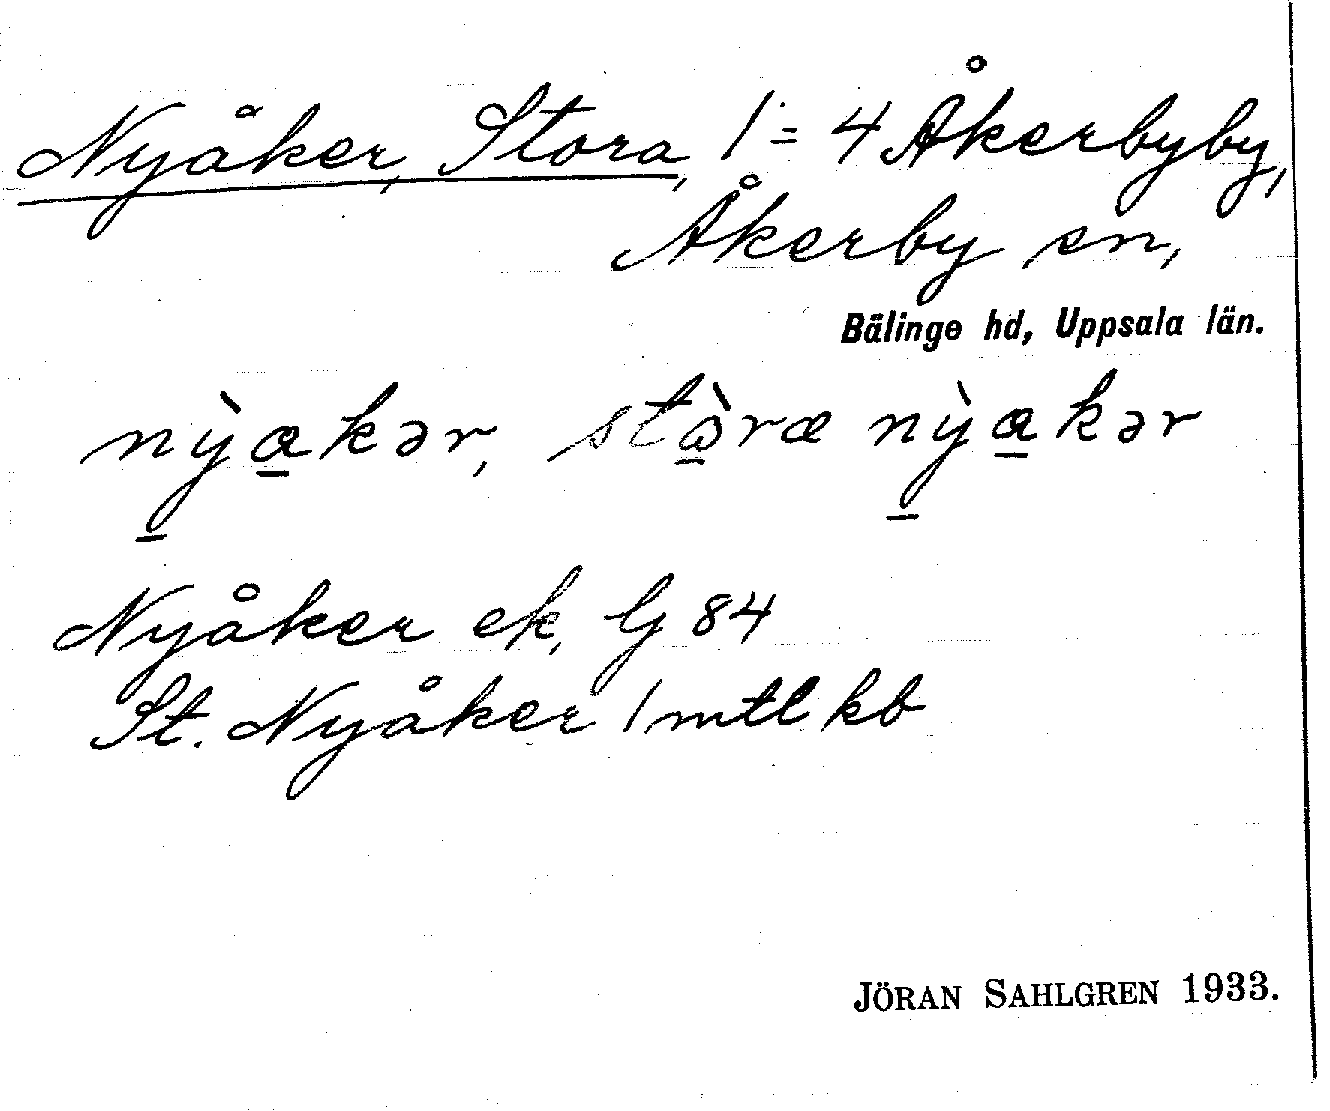 Nyåker, Stora, 1 = 4 Åkerbyby,
Åkerby sn,
Bälinge hd, Uppsala län.
nỳ̠a̠kər, stò̠ræ nỳ̠a̠kər
Nyåker ek, G 84
St. Nyåker 1 mtl kb
JÖRAN SAHLGREN 1933.